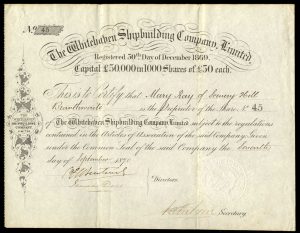 No. 45
The Whitehaven Shipbuilding Company, Limited.
Registered 30th Day of December 1869.
Capital £50,000 in 1000 Shares of £50 each.
This is to Certify that Mary Ray of
is the Proprietor of the Share No. 45
of The Whitehaven Shipbuilding Company, Limited subject to the regulations
contained in the Articles of Association of the said Company. Given
under the Common Seal of the said Company the
day of September 1870
Directors.
Secretary